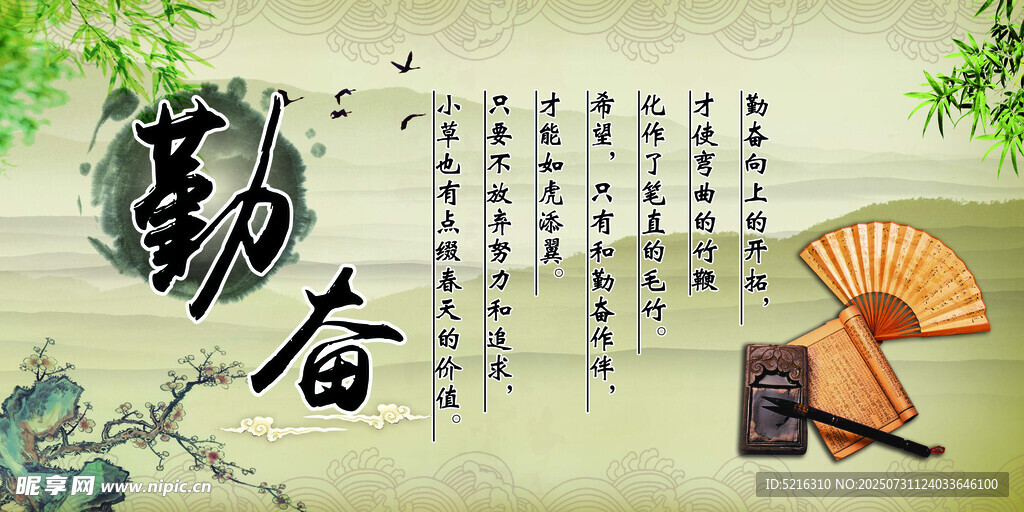 勤奋
勤奋向上的开拓，
才使弯曲的竹鞭
化作了笔直的毛竹。
希望，只有和勤奋作伴，
才能如虎添翼。
只要不放弃努力和追求，
小草也有点缀春天的价值。
昵享网 www.nipic.cn
ID:5216310 NO:20250731124033646100